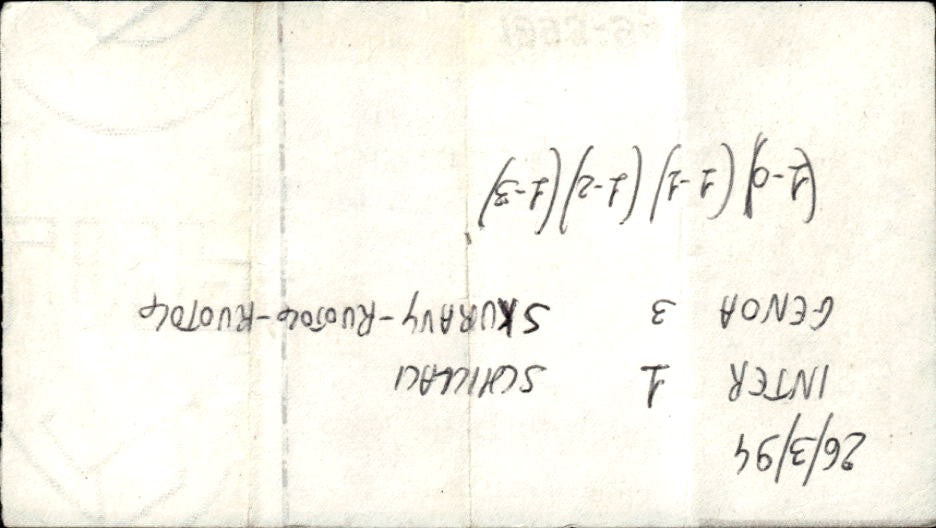 26/3/94
INTER 1 SCHILLACI
GENOA 3 SKURAVY-RUOTOLO-RUOTOLO
(1-0) (1-1) (1-2) (1-3)